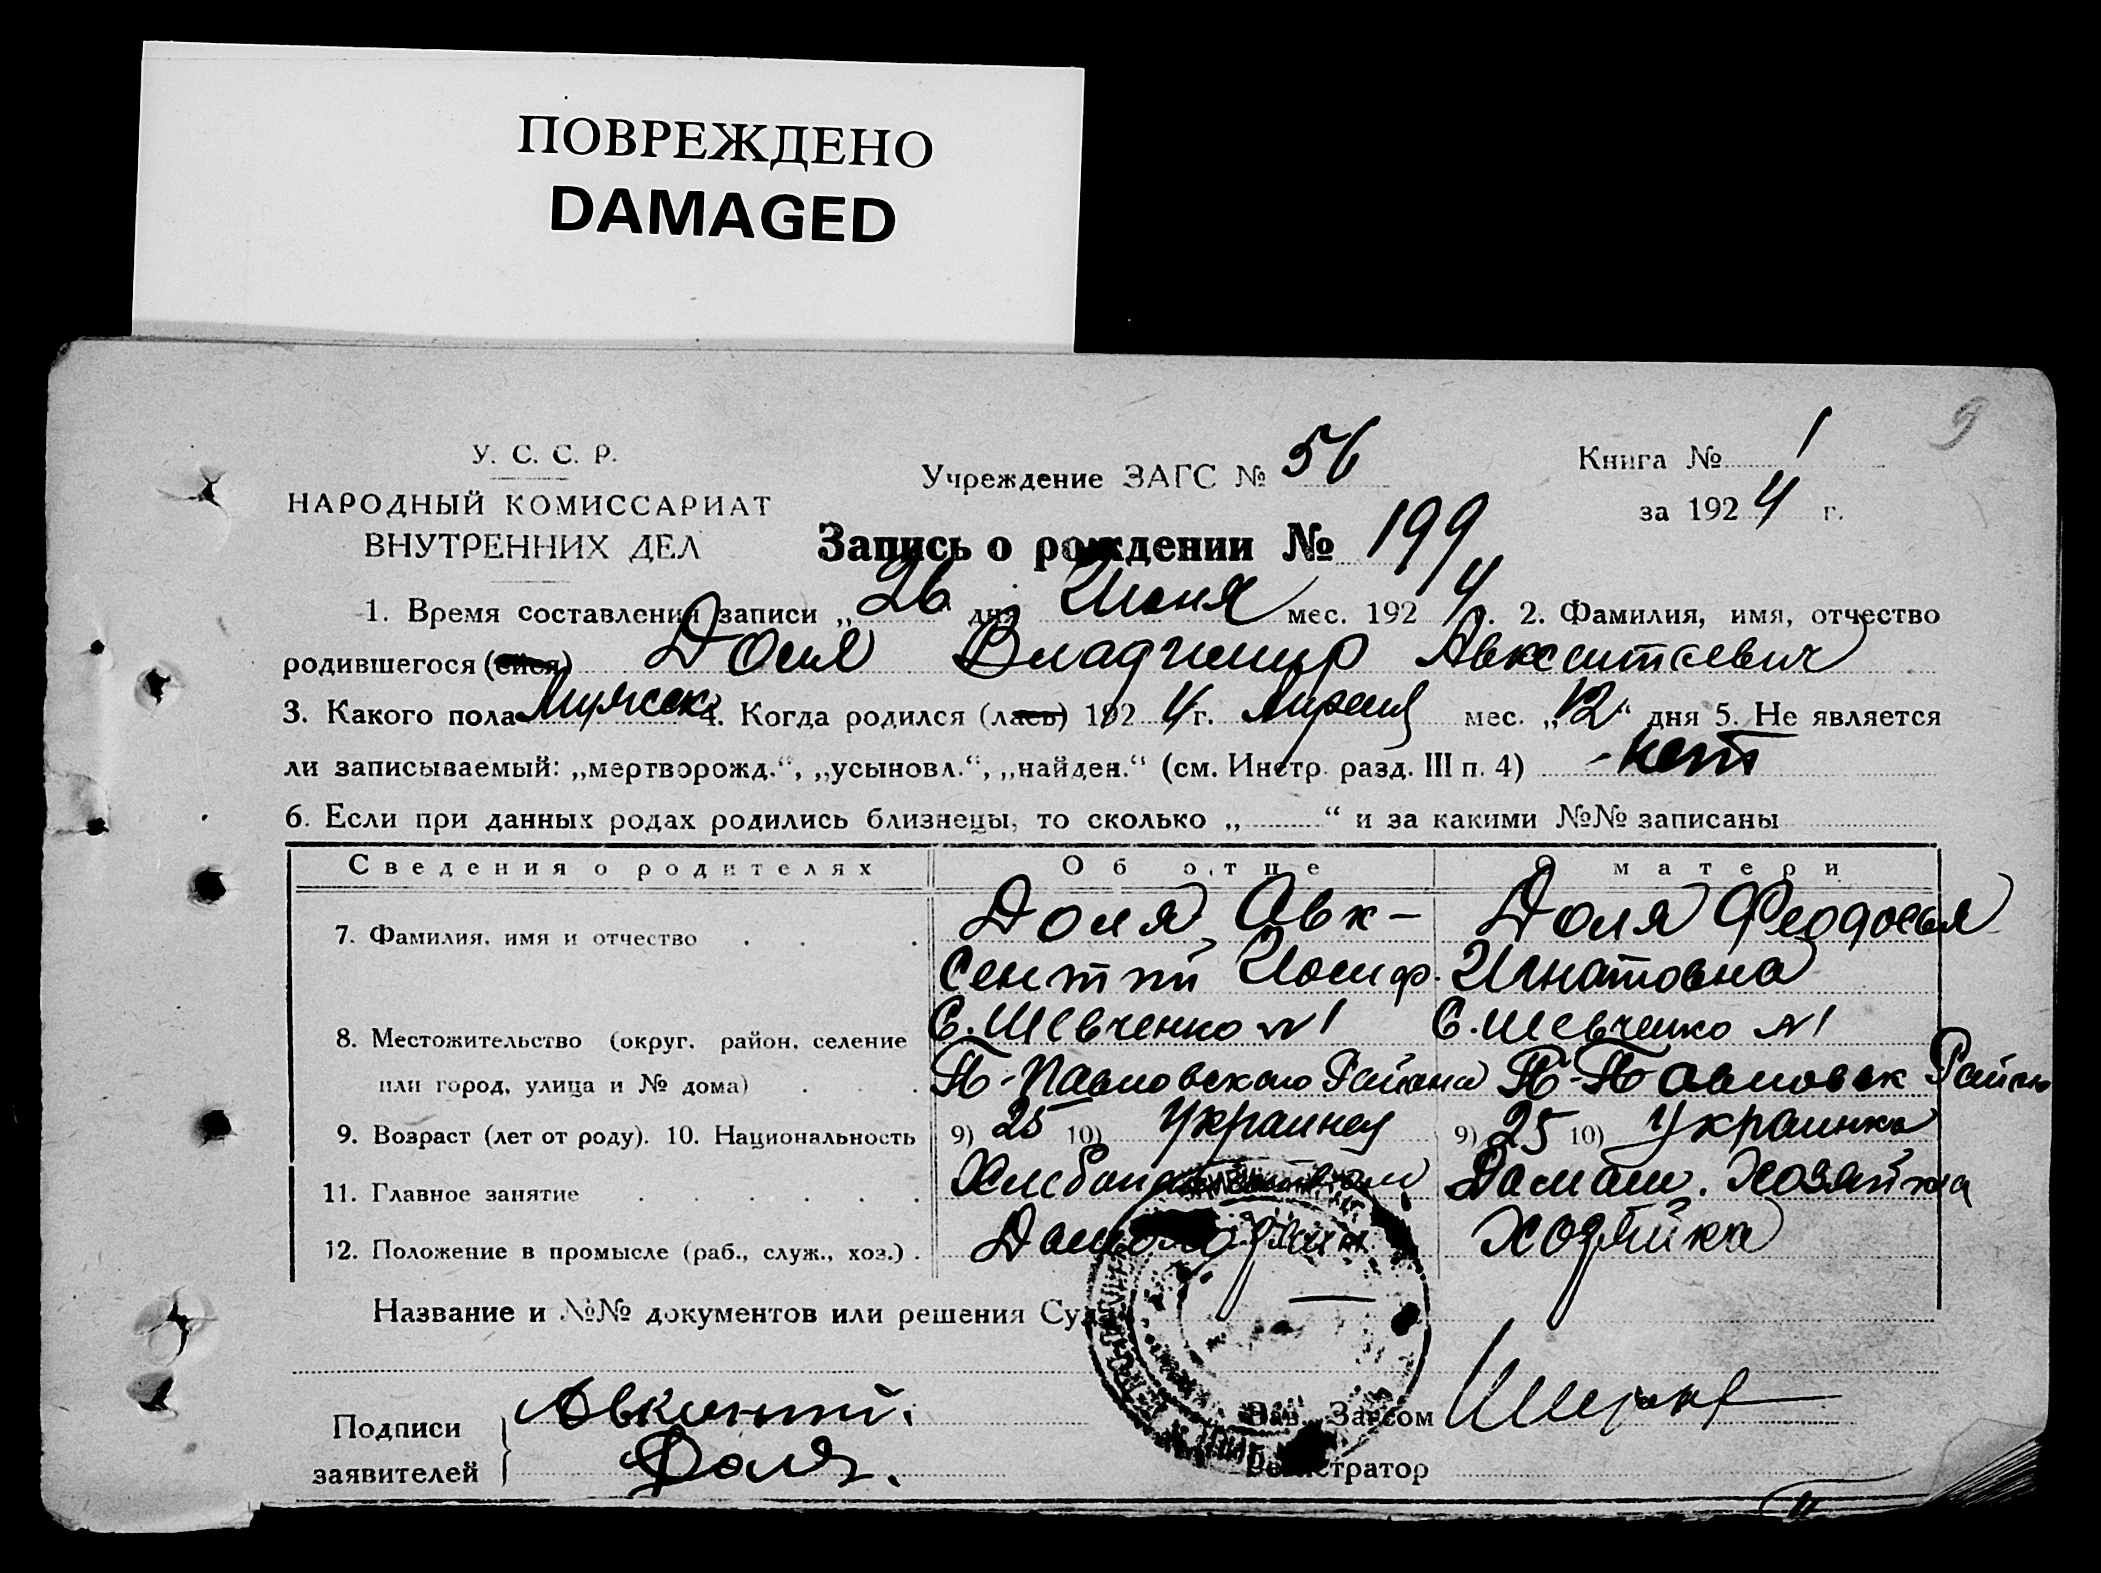 ПОВРЕЖДЕНО
DAMAGED
9
У. С. С. Р.
НАРОДНЫЙ КОМИССАРИАТ
ВНУТРЕННИХ ДЕЛ
Учреждение ЗАГС № 56
Книга № 1
за 1924 г.
Запись о рождении № 199
1. Время составления записи „ 26 дня Июня мес. 1924 г. 2. Фамилия, имя, отчество
родившегося (ейся) Доля Владимир Авксентиевич
3. Какого пола Мужск 4. Когда родился (лась) 1924 г. Апреля мес. „12“ дня 5. Не является
ли записываемый: „мертворожд.“, „усыновл.“, „найден.“ (см. Инстр. разд. III п. 4) - нет
6. Если при данных родах родились близнецы, то сколько „ “ и за какими №№ записаны
Сведения о родителях Об отце О матери
7. Фамилия, имя и отчество Доля Авк- Доля Феодосья
сентий Иосиф. Игнатовна
8. Местожительство (округ, район, селение С. Шевченко №1 С. Шевченко №1
или город, улица и № дома) П-Павловского Района П-Павловск Район
9. Возраст (лет от роду). 10. Национальность 9) 25 10) Украинец 9) 25 10) Украинка
11. Главное занятие Домаш. Хозяйка
12. Положение в промысле (раб., служ., хоз.) Домохозяин Хозяйка
Название и №№ документов или решения Суда
Подписи
заявителей
Доля.
Зав. Загсом
Регистратор